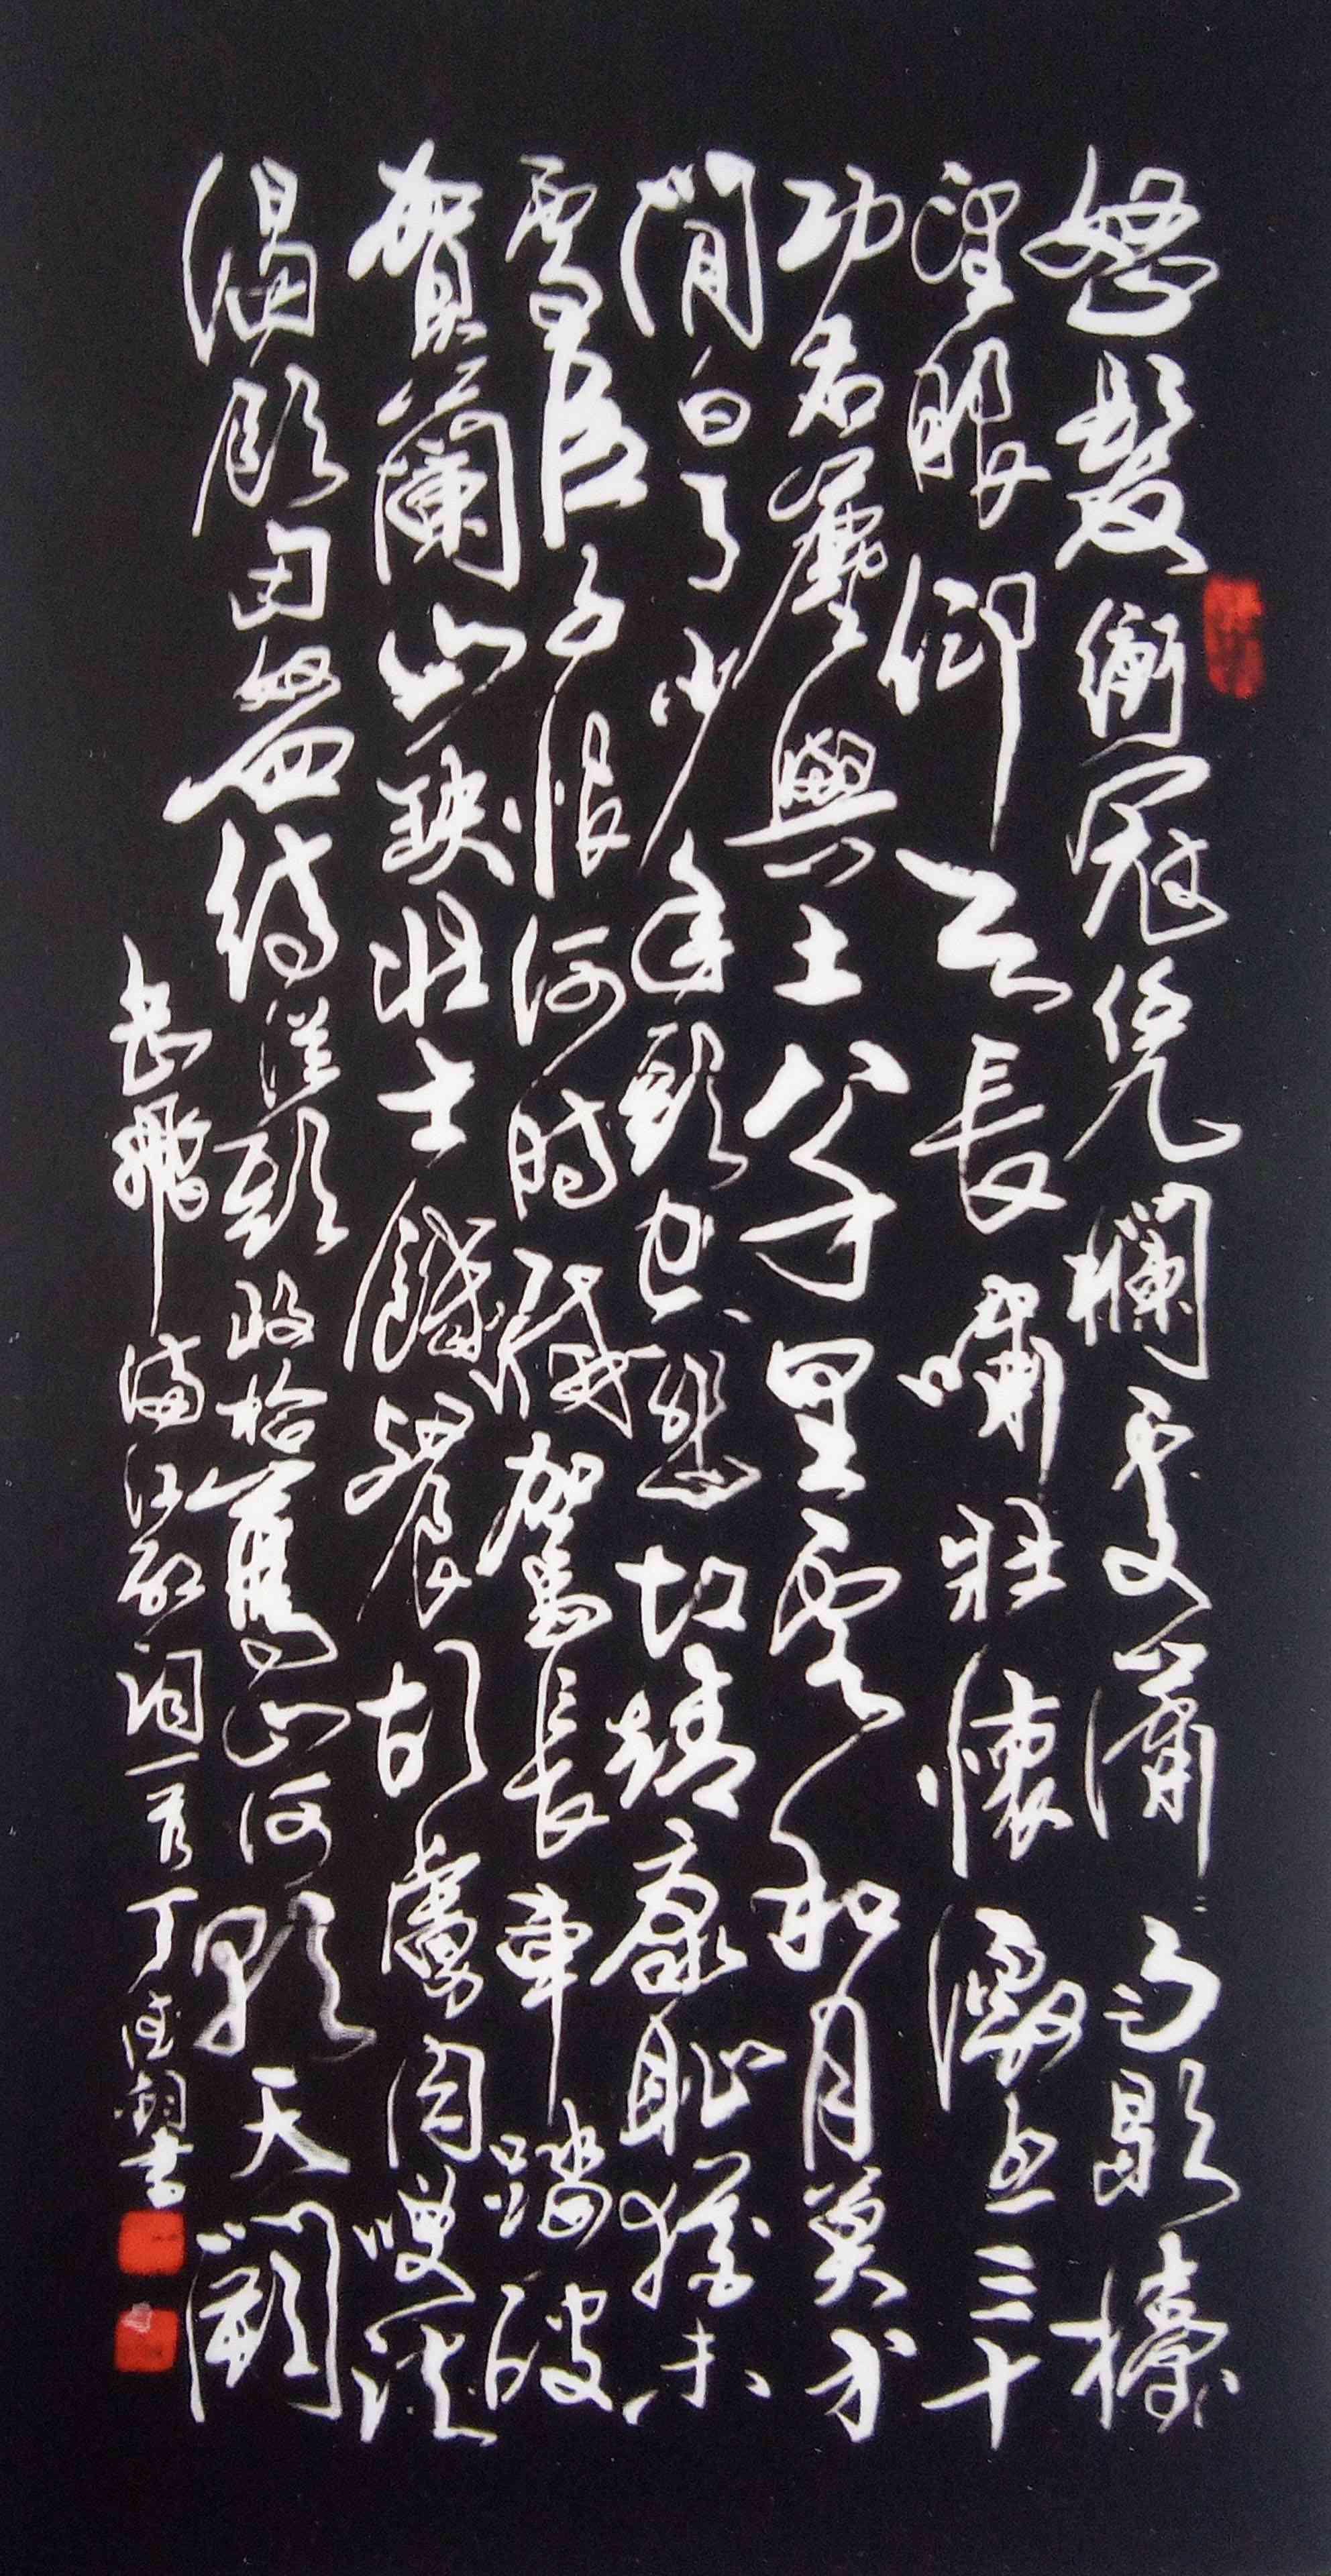 怒髮衝冠凭欄處瀟〻雨歇擡
望眼仰天長嘯壯懷激烈三十
功名塵與土八千里雲和月莫等
閒白了少年頭空悲切靖康恥猶未
雪臣子恨何時滅駕長車踏破
賀蘭山缺壯士饑餐胡虜肉笑談
渴飲匈奴血待從頭收拾舊山河朝天闕
岳飛滿江紅詞一首丁書